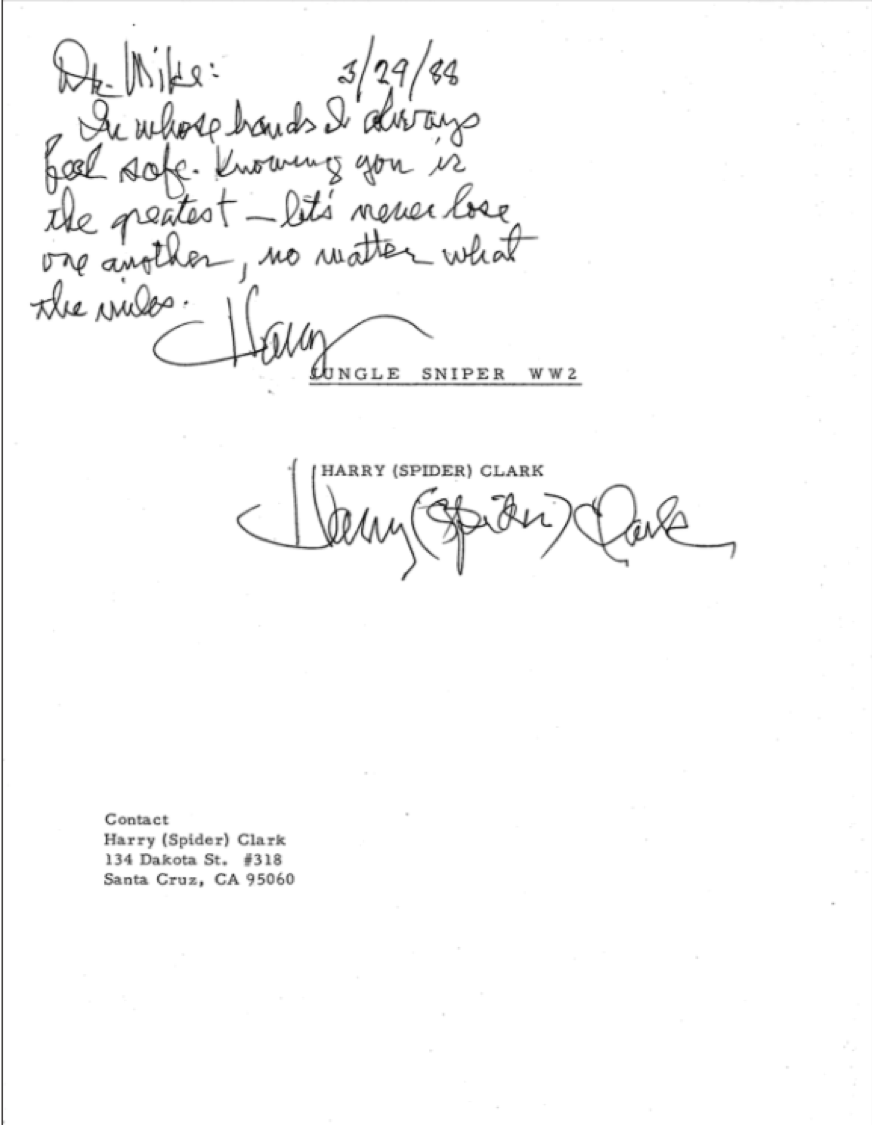 Dr. Mike: 3/29/88
In whose hands I always
feel safe. Knowing you is
the greatest — let's never lose
one another, no matter what
the miles.
Harry
JUNGLE SNIPER WW2
HARRY (SPIDER) CLARK
Harry (Spider) Clark
Contact
Harry (Spider) Clark
134 Dakota St. #318
Santa Cruz, CA 95060